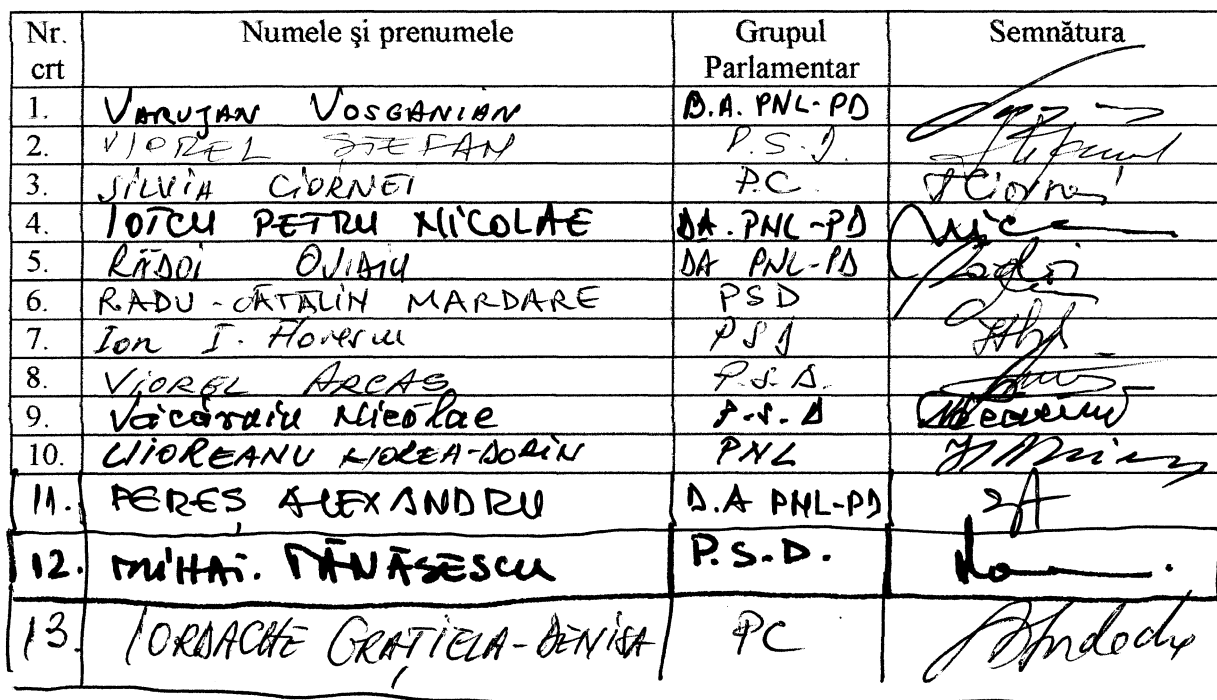 Nr. crt Numele şi prenumele Grupul Parlamentar Semnătura
1. VARUJAN VOSGANIAN D.A. PNL-PD
2. VIOREL ŞTEFAN P.S.D. Ștefan
3. SILVIA CIORNEI P.C. SCiornei
4. IOȚCU PETRU NICOLAE DA. PNL-PD
5. RĂDOI OVIDIU DA PNL-PD
6. RADU-CĂTĂLIN MARDARE PSD
7. Ion I. Florescu PSD
8. VIOREL ARCAȘ P.S.D.
9. Văcăroiu Nicolae P.S.D
10. MIOREA-DORIN PNL
11. PEREȘ ALEXANDRU D.A PNL-PD
12. MIHAI. TĂNĂSESCU P.S.D.
13. IORDACHE GRAȚIELA-DENISA PC